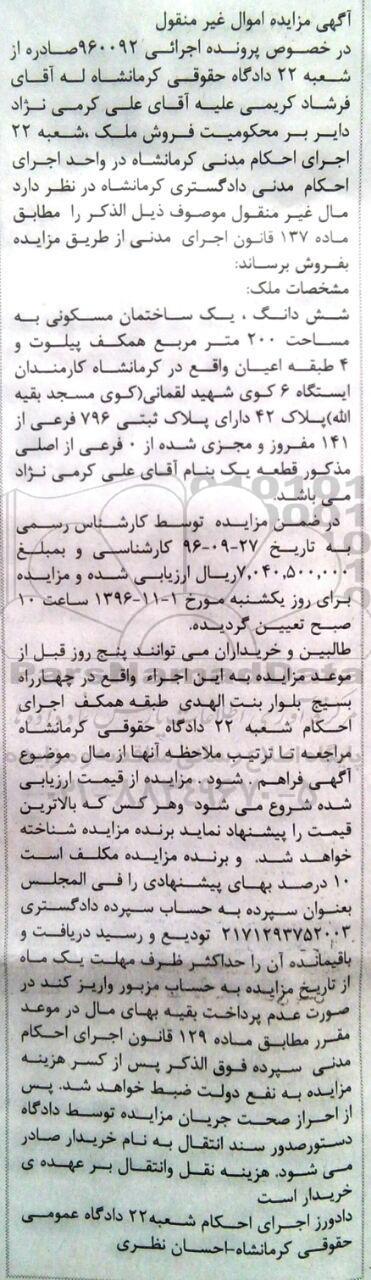 آگهی مزایده اموال غیر منقول
در خصوص پرونده اجرائی ۹۶۰۰۹۲صادره از
شعبه ۲۲ دادگاه حقوقی کرمانشاه له آقای
فرشاد کریمی علیه آقای علی کرمی نژاد
دایر بر محکومیت فروش ملک ،شعبه ۲۲
اجرای احکام مدنی کرمانشاه در واحد اجرای
احکام مدنی دادگستری کرمانشاه در نظر دارد
مال غیر منقول موصوف ذیل الذکر را مطابق
ماده ۱۳۷ قانون اجرای مدنی از طریق مزایده
بفروش برساند:
مشخصات ملک:
شش دانگ ، یک ساختمان مسکونی به
مساحت ۲۰۰ متر مربع همکف پیلوت و
۴ طبقه اعیان واقع در کرمانشاه کارمندان
ایستگاه ۶ کوی شهید لقمانی(کوی مسجد بقیه
الله)پلاک ۴۲ دارای پلاک ثبتی ۷۹۶ فرعی از
۱۴۱ مفروز و مجزی شده از ۰ فرعی از اصلی
مذکور قطعه یک بنام آقای علی کرمی نژاد
می باشد.
در ضمن مزایده توسط کارشناس رسمی
به تاریخ ۲۷-۰۹-۹۶ کارشناسی و بمبلغ
۷,۰۴۰,۵۰۰,۰۰۰ریال ارزیابی شده و مزایده
برای روز یکشنبه مورخ ۱-۱۱-۱۳۹۶ ساعت ۱۰
صبح تعیین گردیده.
طالبین و خریداران می توانند پنج روز قبل از
موعد مزایده به این اجراء واقع در چهارراه
بسیج بلوار بنت الهدی طبقه همکف اجرای
احکام شعبه ۲۲ دادگاه حقوقی کرمانشاه
مراجعه تا ترتیب ملاحظه آنها از مال موضوع
آگهی فراهم شود . مزایده از قیمت ارزیابی
شده شروع می شود وهر کس که بالاترین
قیمت را پیشنهاد نماید برنده مزایده شناخته
خواهد شد. و برنده مزایده مکلف است
۱۰ درصد بهای پیشنهادی را فی المجلس
بعنوان سپرده به حساب سپرده دادگستری
۲۱۷۱۲۹۳۷۵۲۰۰۳ تودیع و رسید دریافت و
باقیمانده آن را حداکثر ظرف مهلت یک ماه
از تاریخ مزایده به حساب مزبور واریز کند در
صورت عدم پرداخت بقیه بهای مال در موعد
مقرر مطابق ماده ۱۲۹ قانون اجرای احکام
مدنی سپرده فوق الذکر پس از کسر هزینه
مزایده به نفع دولت ضبط خواهد شد. پس
از احراز صحت جریان مزایده توسط دادگاه
دستورصدور سند انتقال به نام خریدار صادر
می شود. هزینه نقل وانتقال بر عهده ی
خریدار است
دادورز اجرای احکام شعبه۲۲ دادگاه عمومی
حقوقی کرمانشاه-احسان نظری